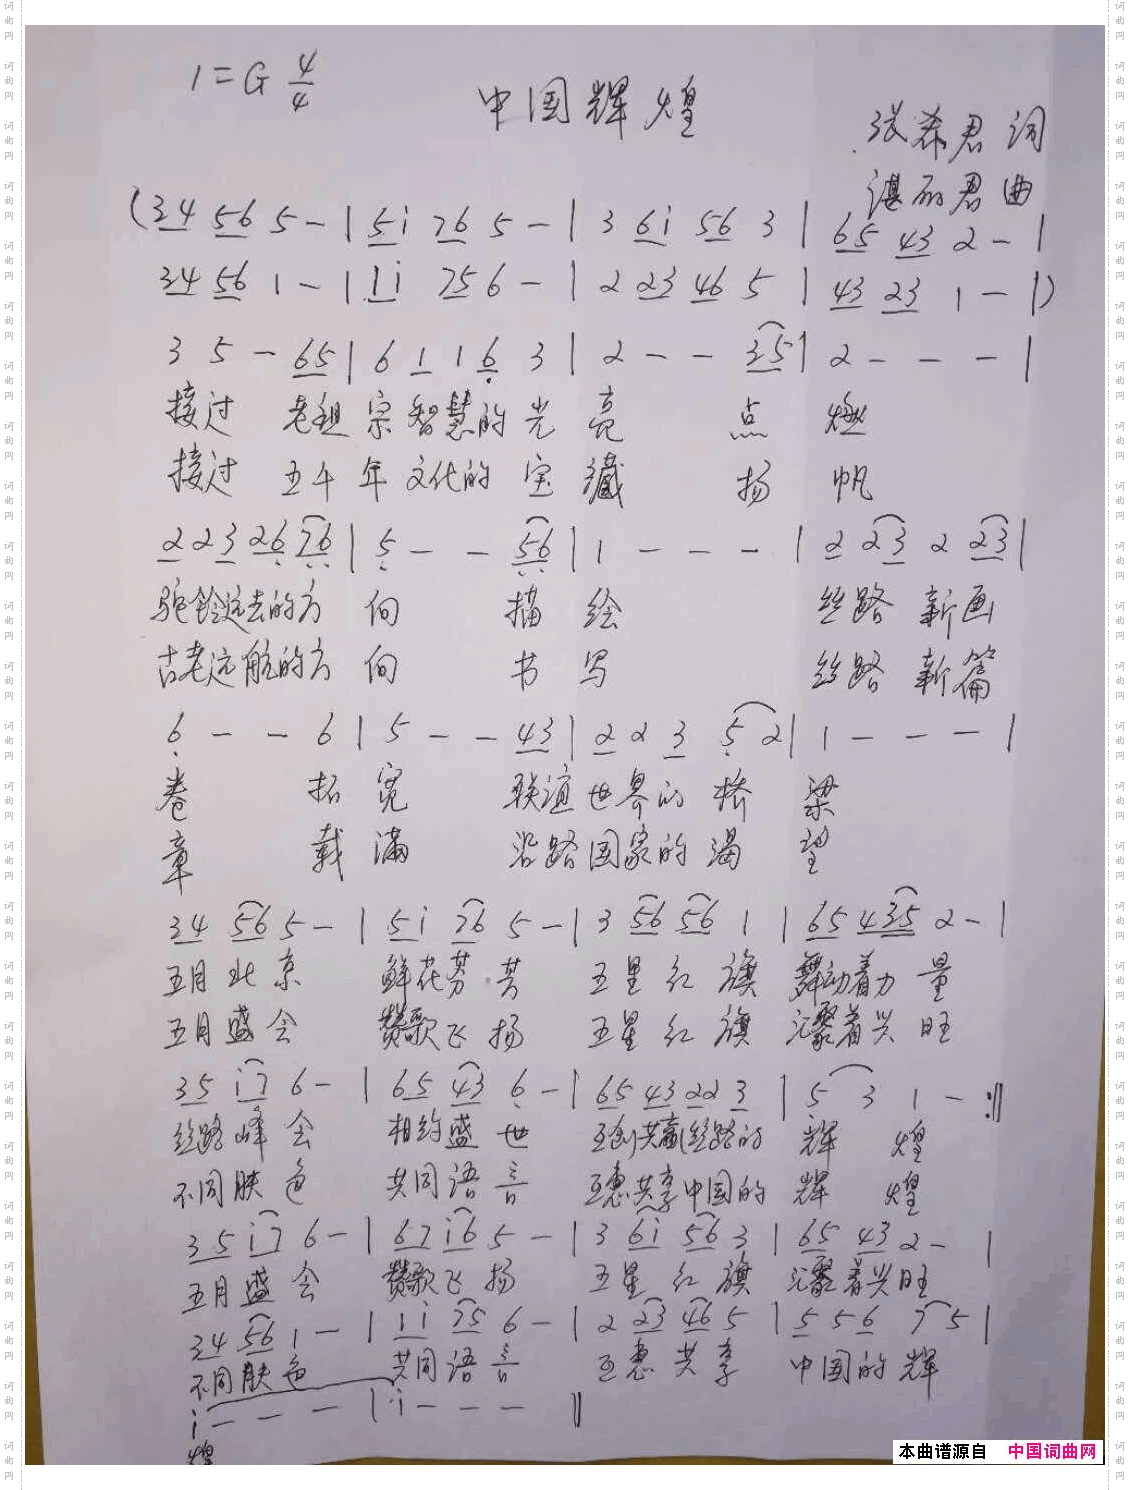 1=G 4/4
中国辉煌
张希君 词
谌丽君 曲
(34 56 5 - | 5i 76 5 - | 3 6i 56 3 | 65 43 2 - |
34 56 1 - | 1i 75 6 - | 2 23 46 5 | 43 23 1 - |)
3 5 - 65 | 6 1 1 6 3 | 2 - - 35 | 2 - - - |
接过 老祖宗智慧的光亮 点燃
接过 五千年文化的宝藏 扬帆
2 2 3 26 76 | 5 - - 56 | 1 - - - | 2 23 2 23 |
驼铃远去的方向 描绘 丝路新画
古老远航的方向 书写 丝路新篇
6 - - 6 | 5 - - 43 | 2 2 3 5 2 | 1 - - - |
卷 拓宽 联谊世界的桥梁
章 载满 沿路国家的渴望
34 56 5 - | 5i 76 5 - | 3 56 56 1 | 65 435 2 - |
五月北京 鲜花芬芳 五星红旗 舞动着力量
五月盛会 赞歌飞扬 五星红旗 汇聚着兴旺
35 i7 6 - | 65 43 6 - | 65 43 22 3 | 5 3 1 - :||
丝路峰会 相约盛世 互创共赢丝路的辉煌
不同肤色 共同语言 互惠共享中国的辉煌
35 i7 6 - | 67 i6 5 - | 3 6i 56 3 | 65 43 2 - |
五月盛会 赞歌飞扬 五星红旗 汇聚着兴旺
34 56 1 - | 1i 75 6 - | 2 23 46 5 | 5 5 6 7 5 |
不同肤色 共同语言 互惠共享 中国的辉
i - - - | i - - - ||
煌
本曲谱源自 中国词曲网